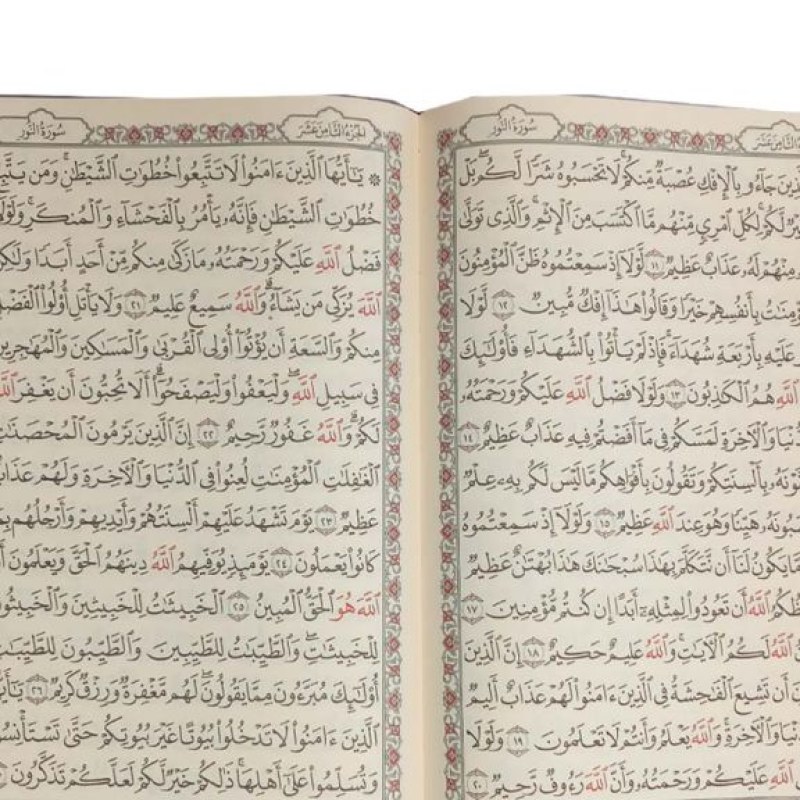 سُورَةُ النُّورِ
ٱلَّذِينَ جَآءُو بِٱلْإِفْكِ عُصْبَةٌ مِّنكُمْ ۚ لَا تَحْسَبُوهُ شَرًّا لَّكُم ۖ بَلْ
لَّكُمْ ۚ لِكُلِّ ٱمْرِئٍ مِّنْهُم مَّا ٱكْتَسَبَ مِنَ ٱلْإِثْمِ ۚ وَٱلَّذِى تَوَلَّىٰ
مِنْهُمْ لَهُۥ عَذَابٌ عَظِيمٌ ١١ لَّوْلَآ إِذْ سَمِعْتُمُوهُ ظَنَّ ٱلْمُؤْمِنُونَ
بِأَنفُسِهِمْ خَيْرًا وَقَالُوا۟ هَـٰذَآ إِفْكٌ مُّبِينٌ ١٢ لَّوْلَا
عَلَيْهِ بِأَرْبَعَةِ شُهَدَآءَ ۚ فَإِذْ لَمْ يَأْتُوا۟ بِٱلشُّهَدَآءِ فَأُو۟لَـٰٓئِكَ
ٱللَّهِ هُمُ ٱلْكَـٰذِبُونَ ١٣ وَلَوْلَا فَضْلُ ٱللَّهِ عَلَيْكُمْ وَرَحْمَتُهُۥ
وَٱلْـَٔاخِرَةِ لَمَسَّكُمْ فِى مَآ أَفَضْتُمْ فِيهِ عَذَابٌ عَظِيمٌ ١٤
بِأَلْسِنَتِكُمْ وَتَقُولُونَ بِأَفْوَاهِكُم مَّا لَيْسَ لَكُم بِهِۦ عِلْمٌ
هَيِّنًا وَهُوَ عِندَ ٱللَّهِ عَظِيمٌ ١٥ وَلَوْلَآ إِذْ سَمِعْتُمُوهُ
مَّا يَكُونُ لَنَآ أَن نَّتَكَلَّمَ بِهَـٰذَا سُبْحَـٰنَكَ هَـٰذَا بُهْتَـٰنٌ عَظِيمٌ
ٱللَّهُ أَن تَعُودُوا۟ لِمِثْلِهِۦٓ أَبَدًا إِن كُنتُم مُّؤْمِنِينَ ١٧
ٱللَّهُ لَكُمُ ٱلْـَٔايَـٰتِ ۚ وَٱللَّهُ عَلِيمٌ حَكِيمٌ ١٨ إِنَّ ٱلَّذِينَ
أَن تَشِيعَ ٱلْفَـٰحِشَةُ فِى ٱلَّذِينَ ءَامَنُوا۟ لَهُمْ عَذَابٌ أَلِيمٌ
وَٱلْـَٔاخِرَةِ ۚ وَٱللَّهُ يَعْلَمُ وَأَنتُمْ لَا تَعْلَمُونَ ١٩ وَلَوْلَا
ٱللَّهِ عَلَيْكُمْ وَرَحْمَتُهُۥ وَأَنَّ ٱللَّهَ رَءُوفٌ رَّحِيمٌ ٢٠
الجُزءُ الثَّامِنَ عَشَرَ سُورَةُ النُّورِ
۞ يَـٰٓأَيُّهَا ٱلَّذِينَ ءَامَنُوا۟ لَا تَتَّبِعُوا۟ خُطُوَٰتِ ٱلشَّيْطَـٰنِ ۚ وَمَن
خُطُوَٰتِ ٱلشَّيْطَـٰنِ فَإِنَّهُۥ يَأْمُرُ بِٱلْفَحْشَآءِ وَٱلْمُنكَرِ ۚ وَلَوْلَا
فَضْلُ ٱللَّهِ عَلَيْكُمْ وَرَحْمَتُهُۥ مَا زَكَىٰ مِنكُم مِّنْ أَحَدٍ أَبَدًا
ٱللَّهَ يُزَكِّى مَن يَشَآءُ ۗ وَٱللَّهُ سَمِيعٌ عَلِيمٌ ٢١ وَلَا يَأْتَلِ أُو۟لُوا۟ ٱلْفَضْلِ
مِنكُمْ وَٱلسَّعَةِ أَن يُؤْتُوٓا۟ أُو۟لِى ٱلْقُرْبَىٰ وَٱلْمَسَـٰكِينَ وَٱلْمُهَـٰجِرِينَ
فِى سَبِيلِ ٱللَّهِ ۖ وَلْيَعْفُوا۟ وَلْيَصْفَحُوٓا۟ ۗ أَلَا تُحِبُّونَ أَن يَغْفِرَ ٱللَّهُ
لَكُمْ ۗ وَٱللَّهُ غَفُورٌ رَّحِيمٌ ٢٢ إِنَّ ٱلَّذِينَ يَرْمُونَ ٱلْمُحْصَنَـٰتِ
ٱلْغَـٰفِلَـٰتِ ٱلْمُؤْمِنَـٰتِ لُعِنُوا۟ فِى ٱلدُّنْيَا وَٱلْـَٔاخِرَةِ وَلَهُمْ عَذَابٌ
عَظِيمٌ ٢٣ يَوْمَ تَشْهَدُ عَلَيْهِمْ أَلْسِنَتُهُمْ وَأَيْدِيهِمْ وَأَرْجُلُهُم بِمَا
كَانُوا۟ يَعْمَلُونَ ٢٤ يَوْمَئِذٍ يُوَفِّيهِمُ ٱللَّهُ دِينَهُمُ ٱلْحَقَّ وَيَعْلَمُونَ
ٱللَّهَ هُوَ ٱلْحَقُّ ٱلْمُبِينُ ٢٥ ٱلْخَبِيثَـٰتُ لِلْخَبِيثِينَ وَٱلْخَبِيثُونَ
لِلْخَبِيثَـٰتِ ۖ وَٱلطَّيِّبَـٰتُ لِلطَّيِّبِينَ وَٱلطَّيِّبُونَ لِلطَّيِّبَـٰتِ
أُو۟لَـٰٓئِكَ مُبَرَّءُونَ مِمَّا يَقُولُونَ ۖ لَهُم مَّغْفِرَةٌ وَرِزْقٌ كَرِيمٌ ٢٦
ٱلَّذِينَ ءَامَنُوا۟ لَا تَدْخُلُوا۟ بُيُوتًا غَيْرَ بُيُوتِكُمْ حَتَّىٰ تَسْتَأْنِسُوا۟
وَتُسَلِّمُوا۟ عَلَىٰٓ أَهْلِهَا ۚ ذَٰلِكُمْ خَيْرٌ لَّكُمْ لَعَلَّكُمْ تَذَكَّرُونَ